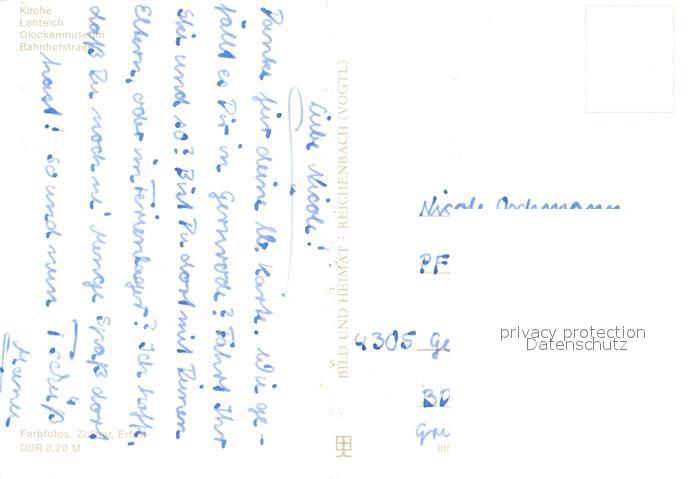 Kirche
Lohteich
Glockenmuseum
Bahnhofstraße
Liebe Nicole!
Danke für deine lb. Karte. Wie ge-
fällt es Dir in Gernrode? Fährt Ihr
Ski und so? Bist Du dort mit Deinen
Eltern, oder im Ferienlager? Ich hoffe,
daß Du noch ne Menge Spaß dort
hast! So und nun Tschüß
Farbfotos: Zöllner, Erfurt
DDR 0,20 M
BILD UND HEIMAT · REICHENBACH (VOGTL)
Nicole
PF
4305 Ge
BD
III/
privacy protection
Datenschutz